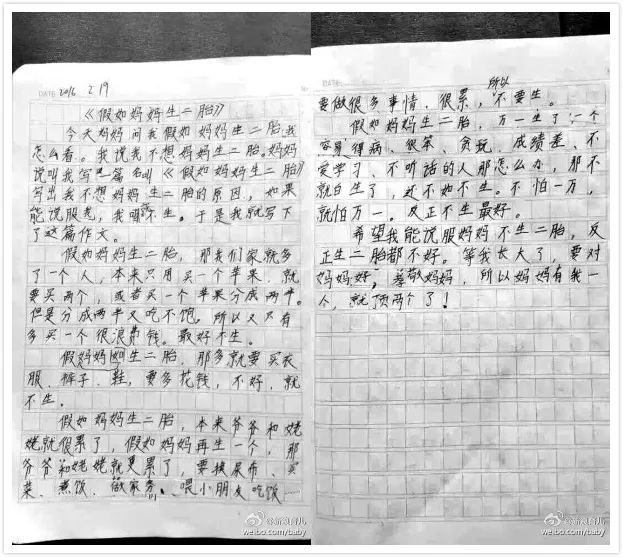 DATE 2016 2 19
《假如妈妈生二胎》
今天妈妈问我假如妈妈生二胎我
怎么看。我说我不想妈妈生二胎。妈妈
说叫我写一篇名叫《假如妈妈生二胎》
写出我不想妈妈生二胎的原因，如果
能说服老，我就不生。于是我就写下
了这篇作文。
假如妈妈生二胎，那我们家就多
了一个人，本来只用买一个苹果，就
要买两个，或者买一个苹果分成两半。
但是分成两半又吃不饱。所以又只有
多买一个很浪费钱。最好不生。
假妈妈如生二胎，那多就要买衣
服、裤子、鞋，要多花钱，不好，就
不生。
假如妈妈生二胎，本来爷爷和姥
姥就很累了，假如妈妈再生一个，那
爷爷和姥姥就更累了，要换尿布、买
菜、煮饭、做家务、喂小朋友吃饭……
DATE
要做很多事情，很累，所以不要生。
假如妈妈生二胎，万一生了一个
容易得病、很笨、贪玩、成绩差、不
爱学习、不听话的人那怎么办，那不
就白生了，还不如不生。不怕一万，
就怕万一。反正不生最好。
希望我能说服妈妈不生二胎，反
正生二胎都不好。等我长大了，要对
妈妈好，孝敬妈妈，所以妈妈有我一
人，就顶两个了！
weibo.com/baby
weibo.com/baby